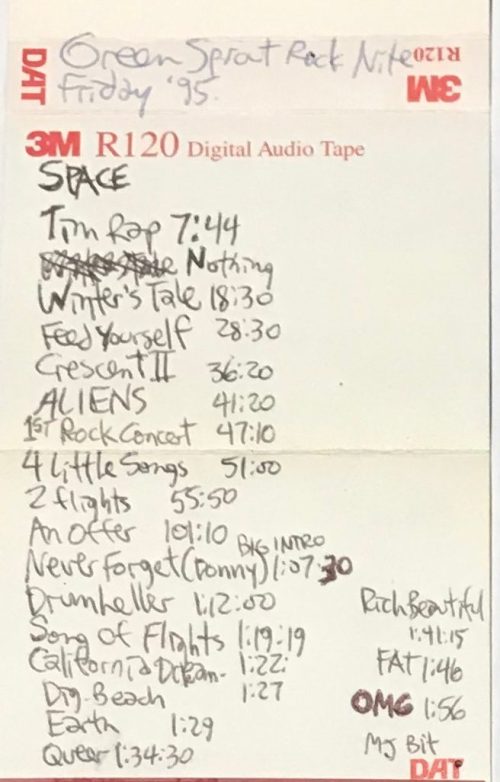 DAT
Green Sprout Rock Nite
Friday '95.
R120
3M
3M R120 Digital Audio Tape
SPACE
Tim Rap 7:44
Nothing
Winter's Tale 18:30
Feed Yourself 28:30
Crescent II 36:20
ALIENS 41:20
1ST Rock Concert 47:10
4 Little Songs 51:00
2 flights 55:50
An Offer 101:10
BIG INTRO
Never Forget (Donny) 1:07:30
Drumheller 1:12:00
Song of Flights 1:19:19
California Dream- 1:22:
Dig-Beach 1:27
Earth 1:29
Queer 1:34:30
Rich Beautiful
1:41:15
FAT 1:46
OMG 1:56
My Bit
DAT